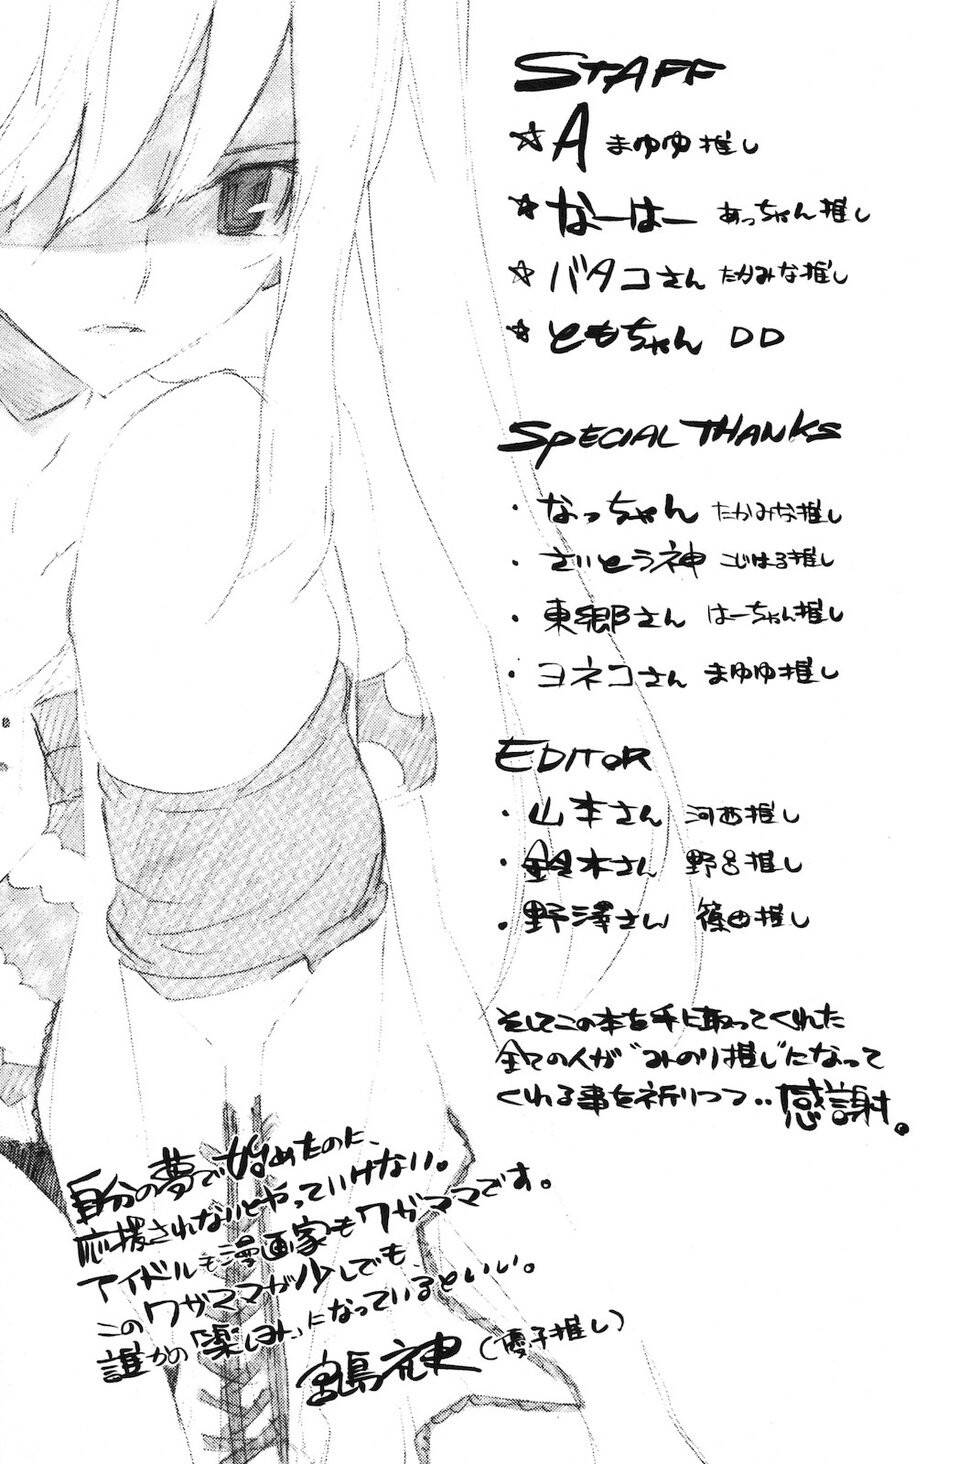 STAFF
☆ A まゆゆ推し
☆ なーはー あっちゃん推し
☆ バタコさん たかみな推し
☆ ともちゃん DD
SPECIAL THANKS
・なっちゃん たかみな推し
・さいとう神 こじはる推し
・東郷さん はーちゃん推し
・ヨネコさん まゆゆ推し
EDITOR
・山本さん 河西推し
・鈴木さん 野呂推し
・野澤さん 篠田推し
そしてこの本を手に取ってくれた
全ての人が"みのり推し"になって
くれる事を祈りつつ‥感謝。
自分の夢で始めたのに、
応援されないとやっていけない。
アイドルも漫画家もワガママです。
このワガママが少しでも、
誰かの「楽しみ」になっているといい。
宮島礼吏(優子推し)